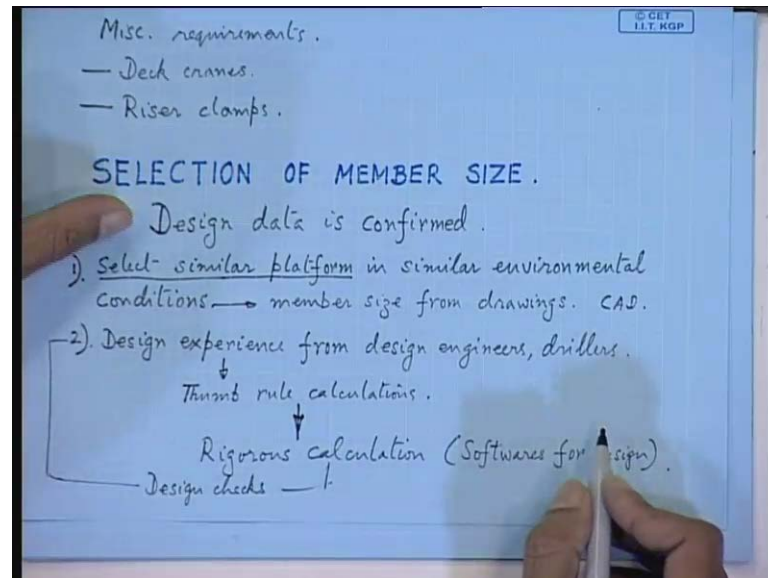 © CET
I.I.T. KGP
Misc. requirements.
— Deck cranes.
— Riser clamps.
SELECTION OF MEMBER SIZE.
Design data is confirmed.
1). Select similar platform in similar environmental
conditions → member size from drawings. CAD.
2). Design experience from design engineers, drillers.
Thumb rule calculations.
Rigorous calculation (Softwares for
Design checks